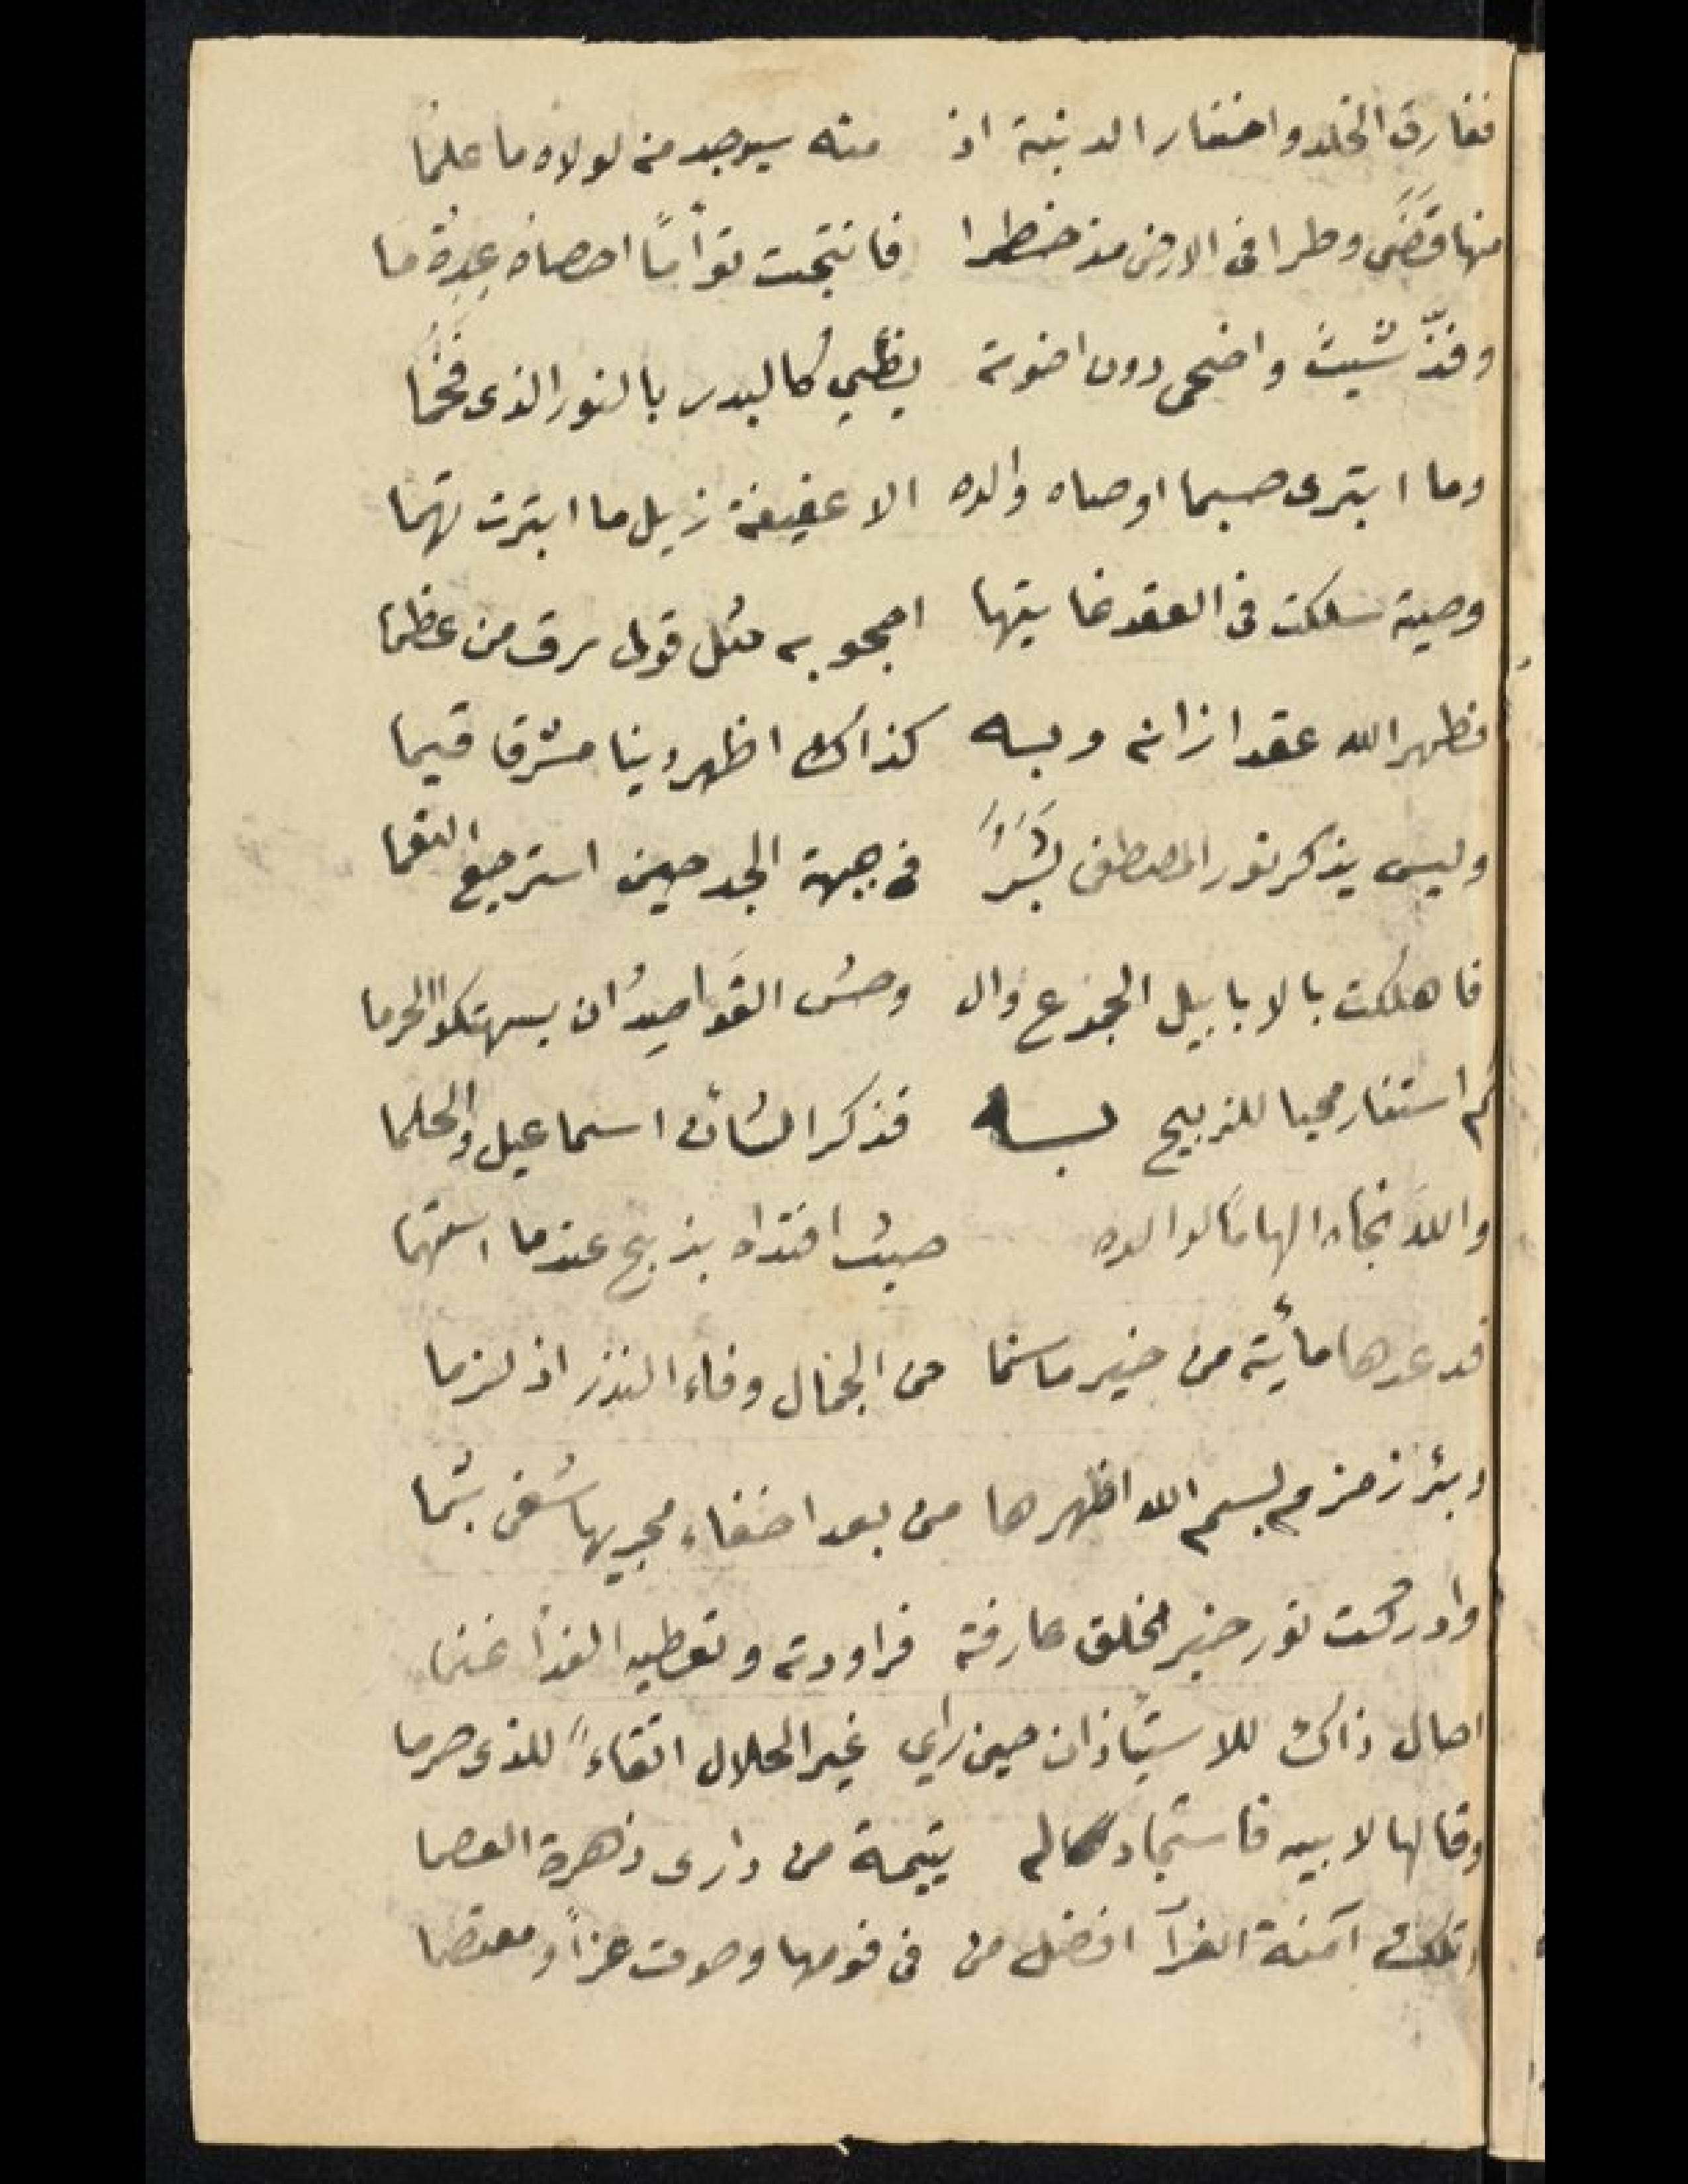 ففارق الخلد واختار الدنية اذ منه سيوجد من لولاه ما علما
منها قَضَى وطرا فى الارض مذ خطرا فانتجت توأمًا احصاه عدة ما
وفذّ شيث واضحى دون اخوته يظبي كالبدر بالنور الذى فخما
وما ابترى حسبما اوصاه والده الا عفيفة ذيل ما ابترت تهما
وصية سلكت فى العقد غايتها اعجوبه مثل قول رق من عظما
فطهر الله عقدا زانه وبسه كذاك اظهر دينا مشرقا قيما
وليس يذكر نور المصطفى بشر فى جبهة الجد حين استرجع النعما
فاهلكت بالابابيل الجموع وال وحش القواصد ان يستهتكوا الحرما
ثم استنار محيا للذبيح بسه فذكر الشان اسماعيل والحلما
والله نجاه الهامًا لوالده حيث افتداه بذبح عندما استهما
قد عدها مائية من خير ما سنما من الجمال وفاء النذر اذ لزما
وبئر زمزم بسم الله اظهرها من بعد اخفاء مجريها شفى بشما
وادركت نور خير الخلق عارفة فراودته وتعطيه الفدا غنما
احال ذاك للاستئذان حين راى غير الحلال اتقاءً للذى حرما
وقالها لابيه فاستجاد له يتيمة من دارى زهرة العصما
وتلك آمنة الغرآ افضل من فى قومها وحوت عزاً ومعتصما